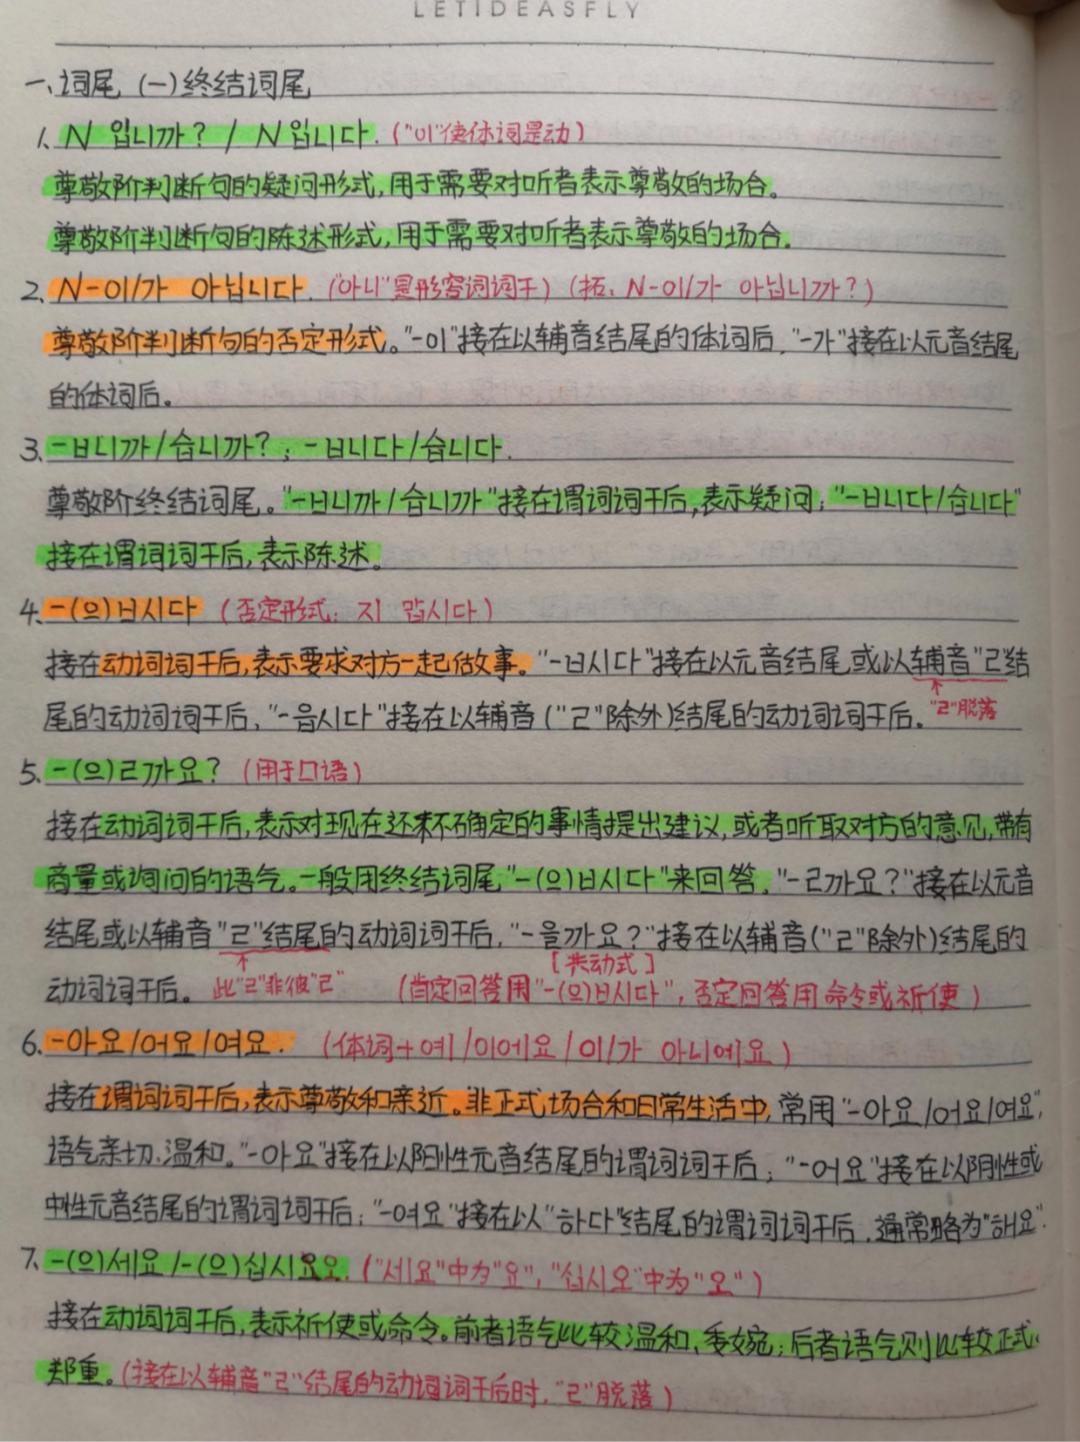 LETIDEASFLY
一、词尾 (一)终结词尾
1. N 입니까? / N 입니다. ("이"使体词是动)
尊敬阶判断句的疑问形式,用于需要对听者表示尊敬的场合。
尊敬阶判断句的陈述形式,用于需要对听者表示尊敬的场合。
2. N-이/가 아닙니다. ("아니"是形容词词干) (拓: N-이/가 아닙니까?)
尊敬阶判断句的否定形式。"-이"接在以辅音结尾的体词后,"-가"接在以元音结尾
的体词后。
3. -ㅂ니까/습니까? ; -ㅂ니다/습니다.
尊敬阶终结词尾。"-ㅂ니까/습니까"接在谓词词干后,表示疑问;"-ㅂ니다/습니다"
接在谓词词干后,表示陈述。
4. -(으)ㅂ시다 (否定形式: 지 맙시다)
接在动词词干后,表示要求对方一起做故事。"-ㅂ시다"接在以元音结尾或以辅音"ㄹ"结
尾的动词词干后,"-읍시다"接在以辅音("ㄹ"除外)结尾的动词词干后。
"ㄹ"脱落
5. -(으)ㄹ까요? (用于口语)
接在动词词干后,表示对现在还不确定的事情提出建议,或者听取对方的意见,带有
商量或询问的语气。一般用终结词尾"-(으)ㅂ시다"来回答,"-ㄹ까요?"接在以元音
结尾或以辅音"ㄹ"结尾的动词词干后,"-을까요?"接在以辅音("ㄹ"除外)结尾的
[共动式]
动词词干后。 此"ㄹ"非彼"ㄹ" (肯定回答用"-(으)ㅂ시다",否定回答用命令或祈使)
6. -아요/어요/여요. (体词+예/이에요/이/가 아니에요)
接在谓词词干后,表示尊敬和亲近。非正式场合和日常生活中,常用"-아요/어요/여요",
语气亲切、温和。"-아요"接在以阳性元音结尾的谓词词干后;"-어요"接在以阴性或
中性元音结尾的谓词词干后;"-여요"接在以"하다"结尾的谓词词干后,通常略为"해요".
7. -(으)세요/-(으)십시오. ("세요"中为"요","십시오"中为"오")
接在动词词干后,表示祈使或命令。前者语气比较温和、委婉;后者语气则比较正式、
郑重。(接在以辅音"ㄹ"结尾的动词词干后时,"ㄹ"脱落)